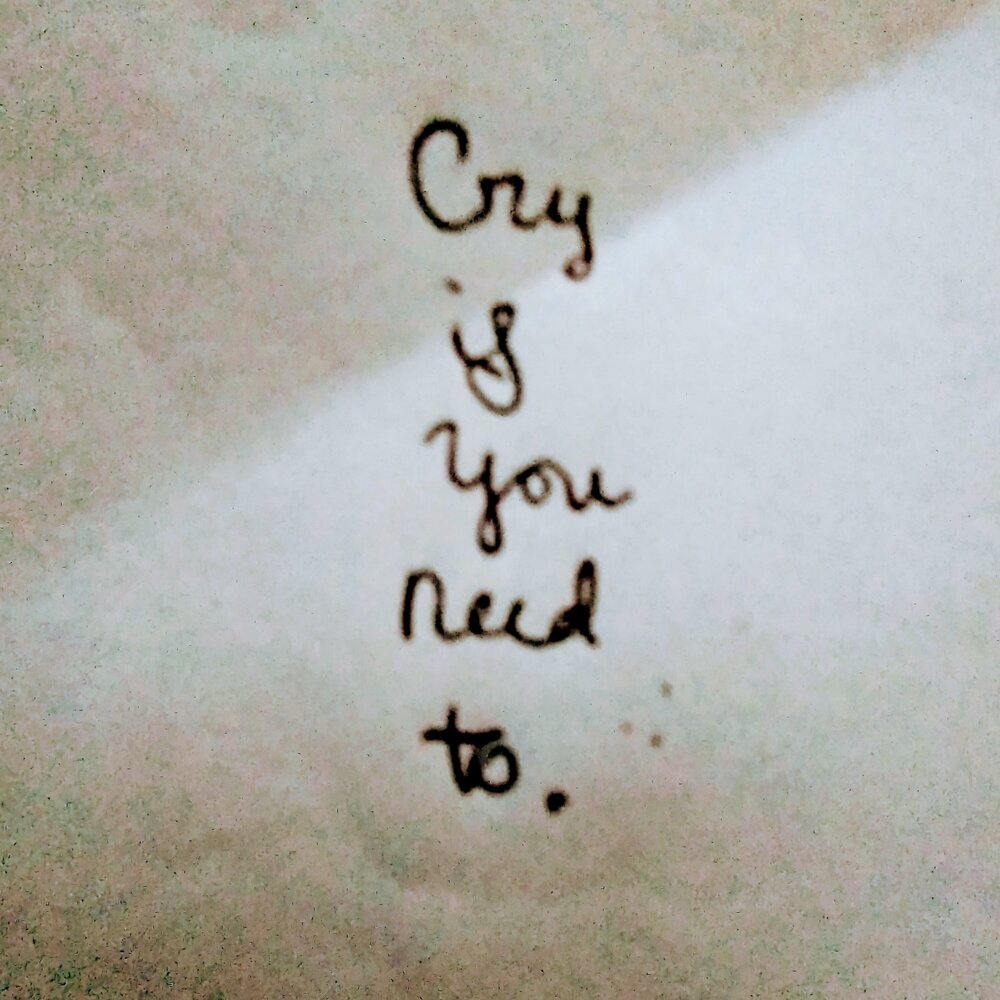 Cry
if
you
need
to.